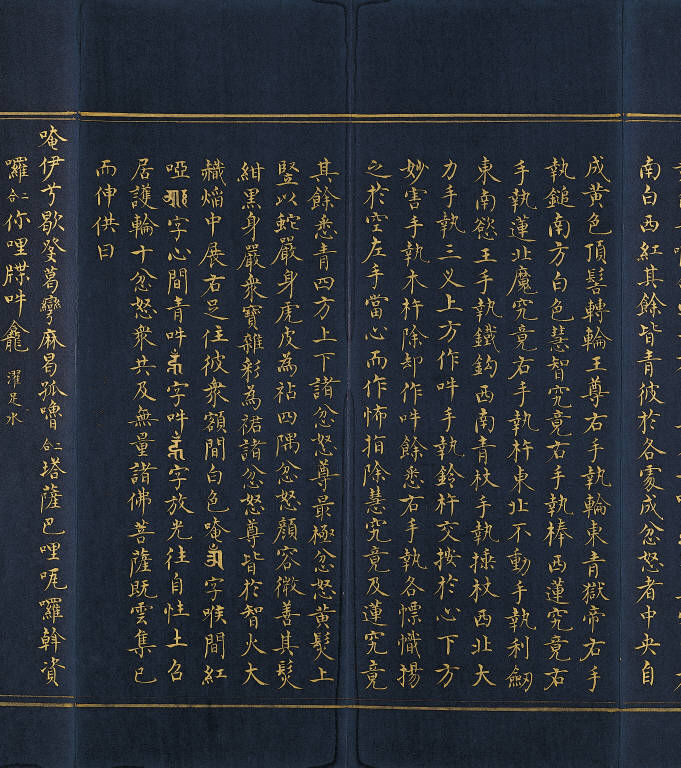 南白西紅其餘皆青彼於各處成忿怒者中央自
成黃色頂髻轉輪王尊右手執輪東青獄帝右手
執鎚南方白色慧智究竟右手執棒西蓮究竟右
手執蓮北魔究竟右手執杵東北不動手執利劒
東南慾王手執鐵鈎西南青杖手執捶杖西北大
力手執三义上方作吽手執鈴杵交按於心下方
妙害手執木杵除却作吽餘悉右手執各慓幟揚
之於空左手當心而作怖指除慧究竟及蓮究竟
其餘悉青四方上下諸忿怒尊最極忿怒黃髮上
竪以蛇嚴身虎皮為袥四隅忿怒顏容微善其髮
紺黑身嚴衆寶雜彩為裙諸忿怒尊皆於智火大
熾熖中展右足住彼衆額間白色唵字喉間紅
啞字心間青吽字吽字放光往自性上召
居護輪十忿怒衆共及無量諸佛菩薩既雲集已
而伸供曰
唵伊兮歇癹葛彎麻曷孤嚕二合塔薩巴哩㖠囉斡資
囉二合你哩牒吽龕 濯足水